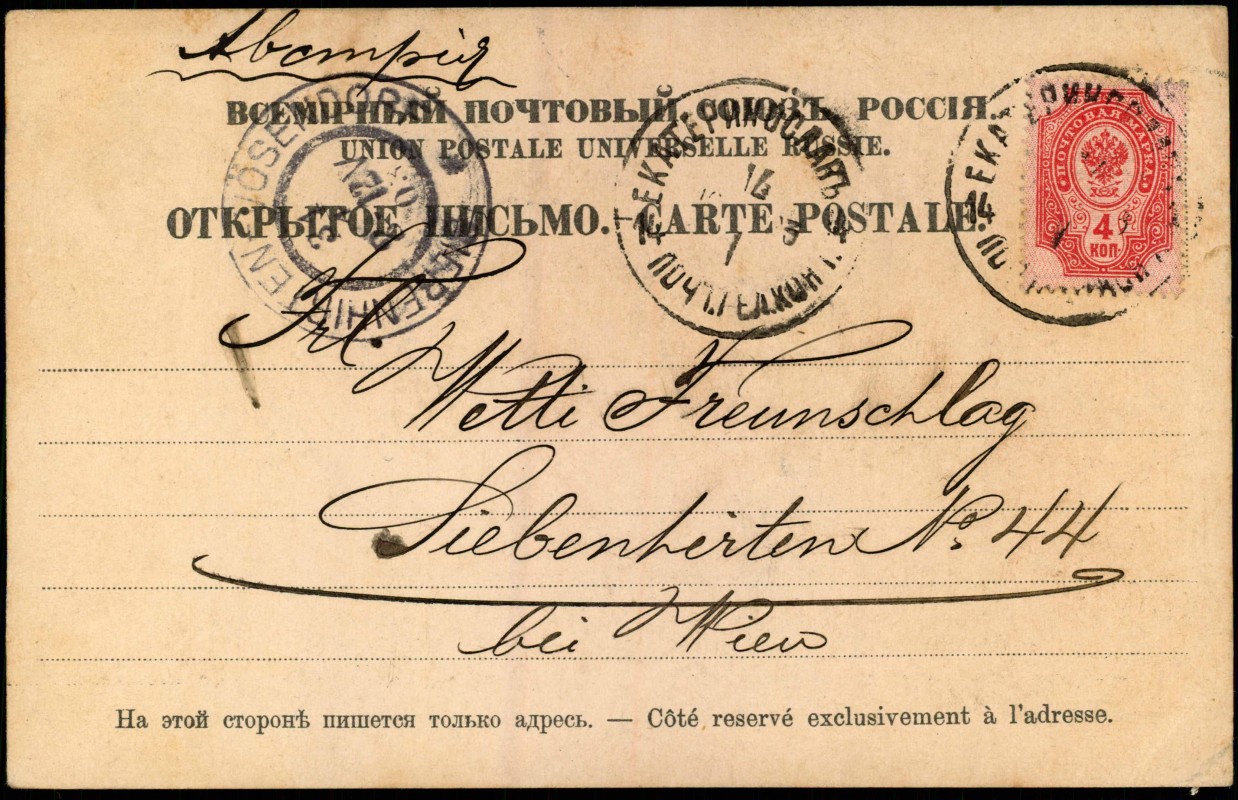 Австрія
ВСЕМІРНЫЙ ПОЧТОВЫЙ СОЮЗЪ. РОССІЯ.
UNION POSTALE UNIVERSELLE RUSSIE.
ОТКРЫТОЕ ПИСЬМО. — CARTE POSTALE.
ЕКАТЕРИНОСЛАВЪ
14
ПОЧТ.ТЕЛ.КОН
14
ПОЧТОВАЯ МАРКА
4
КОП.
VÖSENDORF
Frl.
Wetti Freunschlag
Siebenhirten No. 44
bei Wien
На этой сторонѣ пишется только адресъ. — Côté reservé exclusivement à l'adresse.